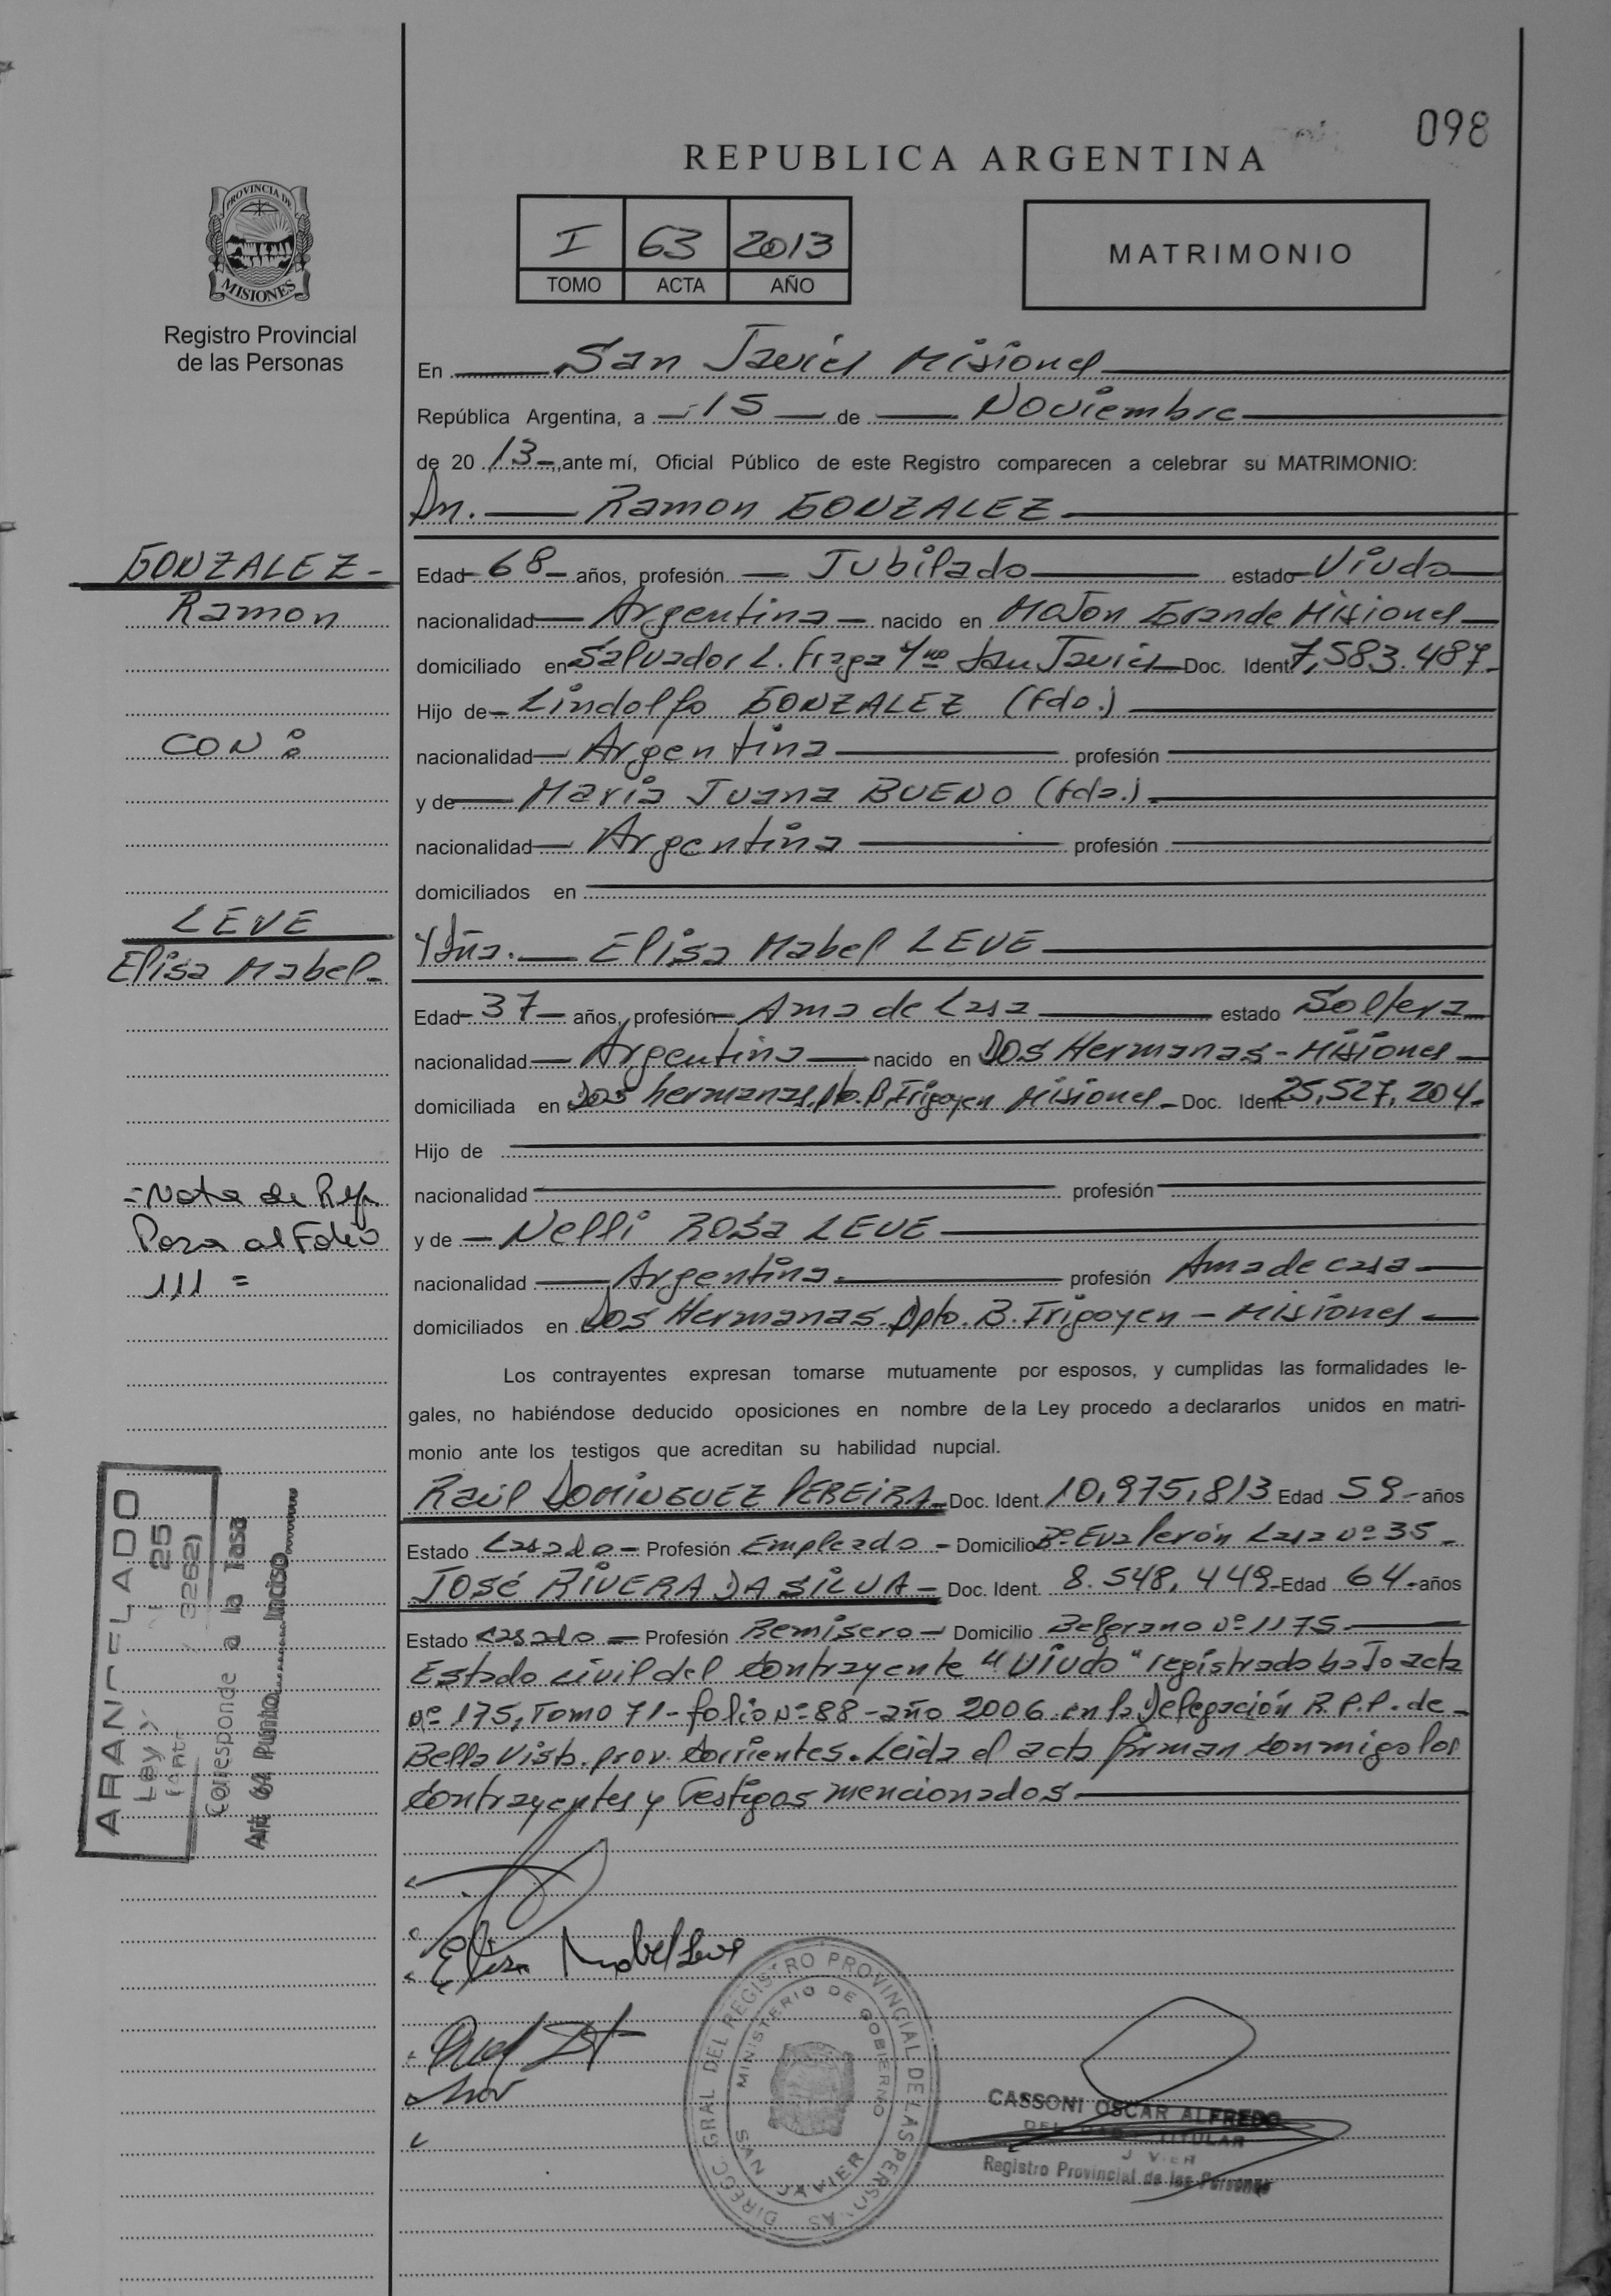 098
REPUBLICA ARGENTINA
PROVINCIA DE
MISIONES
Registro Provincial
de las Personas
I 63 2013
TOMO ACTA AÑO
MATRIMONIO
En San Javier Misiones
República Argentina, a 15 de Noviembre
de 20 13, ante mí, Oficial Público de este Registro comparecen a celebrar su MATRIMONIO:
Dn. Ramon GONZALEZ
GONZALEZ
Ramon
CON:
LEVE
Elisa Mabel
Edad 68 años, profesión Jubilado estado Viudo
nacionalidad Argentina nacido en Mojon Grande Misiones
domiciliado en Salvador L. Fraga San Javier Doc. Ident 7,583.487
Hijo de Lindolfo GONZALEZ (fdo.)
nacionalidad Argentina profesión
y de Maria Juana BUENO (fda.)
nacionalidad Argentina profesión
domiciliados en
Y Dña. Elisa Mabel LEVE
Edad 37 años, profesión Ama de Casa estado Soltera
nacionalidad Argentina nacido en Dos Hermanas - Misiones
domiciliada en Dos hermanas, Dpto. B. Irigoyen Misiones Doc. Ident. 25,527,204
Hijo de
nacionalidad profesión
y de Nelli Rosa LEVE
nacionalidad Argentina profesión Ama de casa
domiciliados en Dos Hermanas Dpto. B. Irigoyen - Misiones
Nota de Ref.
Pasa al Folio
111 =
Los contrayentes expresan tomarse mutuamente por esposos, y cumplidas las formalidades le-
gales, no habiéndose deducido oposiciones en nombre de la Ley procedo a declararlos unidos en matri-
monio ante los testigos que acreditan su habilidad nupcial.
Raúl DOMINGUEZ PEREIRA Doc. Ident. 10,975,813 Edad 59 años
Estado Casado Profesión Empleado Domicilio Bº Eva Perón Casa Nº 35
JOSÉ RIVERA DA SILVA Doc. Ident. 8.548,449 Edad 64 años
Estado Casado Profesión Remisero Domicilio Belgrano Nº 1175
Estado civil del contrayente "Viudo" registrado bajo acta
Nº 175, Tomo 71 - folio Nº 88 - año 2006 en la Delegación R.P.P. de
Bella Vista. prov. Corrientes. Leida el acta firman conmigo los
contrayentes y Testigos mencionados
ARANCELADO
Ley 25
3262)
Corresponde a la Tasa
Art. 62 Punto Inciso
Elisa Mabel Leve
DIRECC. GRAL DEL REGISTRO PROVINCIAL DE LAS PERSONAS
MINISTERIO DE GOBIERNO
SAN JAVIER
CASSONI OSCAR ALFREDO
TITULAR
Registro Provincial de las Personas